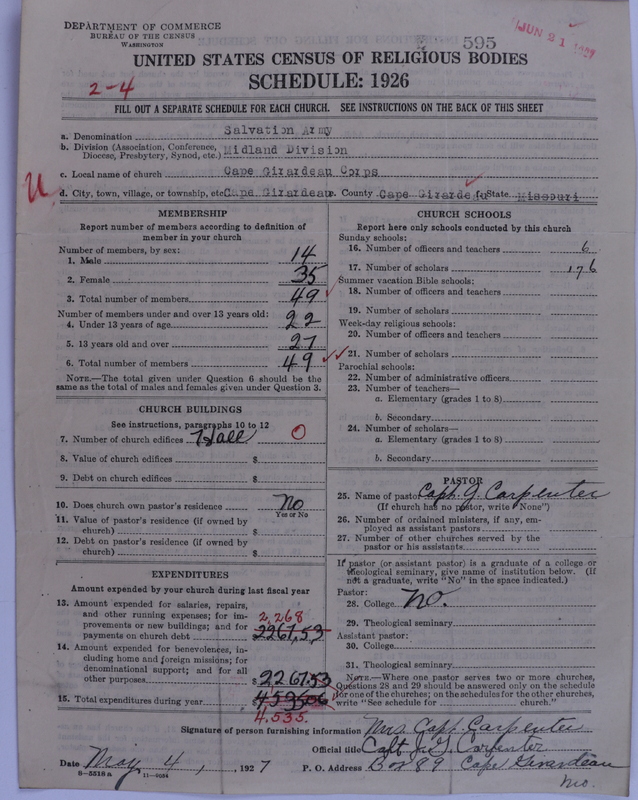 DEPARTMENT OF COMMERCE
BUREAU OF THE CENSUS
WASHINGTON
595
JUN 21 1927
UNITED STATES CENSUS OF RELIGIOUS BODIES
SCHEDULE: 1926
2-4
FILL OUT A SEPARATE SCHEDULE FOR EACH CHURCH. SEE INSTRUCTIONS ON THE BACK OF THIS SHEET
a. Denomination Salvation Army
b. Division (Association, Conference, Diocese, Presbytery, Synod, etc.) Midland Division
c. Local name of church Cape Girardeau Corps
U
d. City, town, village, or township, etc. Cape Girardeau e. County Cape Girardeau f. State Missouri
MEMBERSHIP
Report number of members according to definition of
member in your church
Number of members, by sex:
1. Male 14
2. Female 35
3. Total number of members 49
Number of members under and over 13 years old:
4. Under 13 years of age 22
5. 13 years old and over 27
6. Total number of members 49
NOTE.—The total given under Question 6 should be
same as the total of males and females given under Question 3.
CHURCH BUILDINGS
See instructions, paragraphs 10 to 12
7. Number of church edifices Hall 0
8. Value of church edifices $
9. Debt on church edifices $
10. Does church own pastor's residence No
Yes or No
11. Value of pastor's residence (if owned by
church) $
12. Debt on pastor's residence (if owned by
church) $
EXPENDITURES
Amount expended by your church during last fiscal year
13. Amount expended for salaries, repairs,
and other running expenses; for im- 2,268
provements or new buildings; and for
payments on church debt 2267.53
14. Amount expended for benevolences, in-
cluding home and foreign missions; for
denominational support; and for all
other purposes $2267.53
15. Total expenditures during year 4535.06
4,535.
CHURCH SCHOOLS
Report here only schools conducted by this church
Sunday schools:
16. Number of officers and teachers 6
17. Number of scholars 176
Summer vacation Bible schools:
18. Number of officers and teachers
19. Number of scholars
Week-day religious schools:
20. Number of officers and teachers
21. Number of scholars
Parochial schools:
22. Number of administrative officers
23. Number of teachers—
a. Elementary (grades 1 to 8)
b. Secondary
24. Number of scholars—
a. Elementary (grades 1 to 8)
b. Secondary
PASTOR
25. Name of pastor Capt. J. Carpenter
(If church has no pastor, write "None")
26. Number of ordained ministers, if any, em-
ployed as assistant pastors
27. Number of other churches served by the
pastor or his assistants
If pastor (or assistant pastor) is a graduate of a college or
theological seminary, give name of institution below. (If
not a graduate, write "No" in the space indicated.)
Pastor:
28. College No.
29. Theological seminary
Assistant pastor:
30. College
31. Theological seminary
NOTE.—Where one pastor serves two or more churches,
Questions 28 and 29 should be answered only on the schedule
for one of the churches; on the schedules for the other churches,
write "See schedule for church."
Signature of person furnishing information Mrs Capt. Carpenter
Official title Capt J. G. Carpenter
Date May 4, 1927 P. O. Address Box 89 Cape Girardeau
Mo.
8-5518 a 11-9034